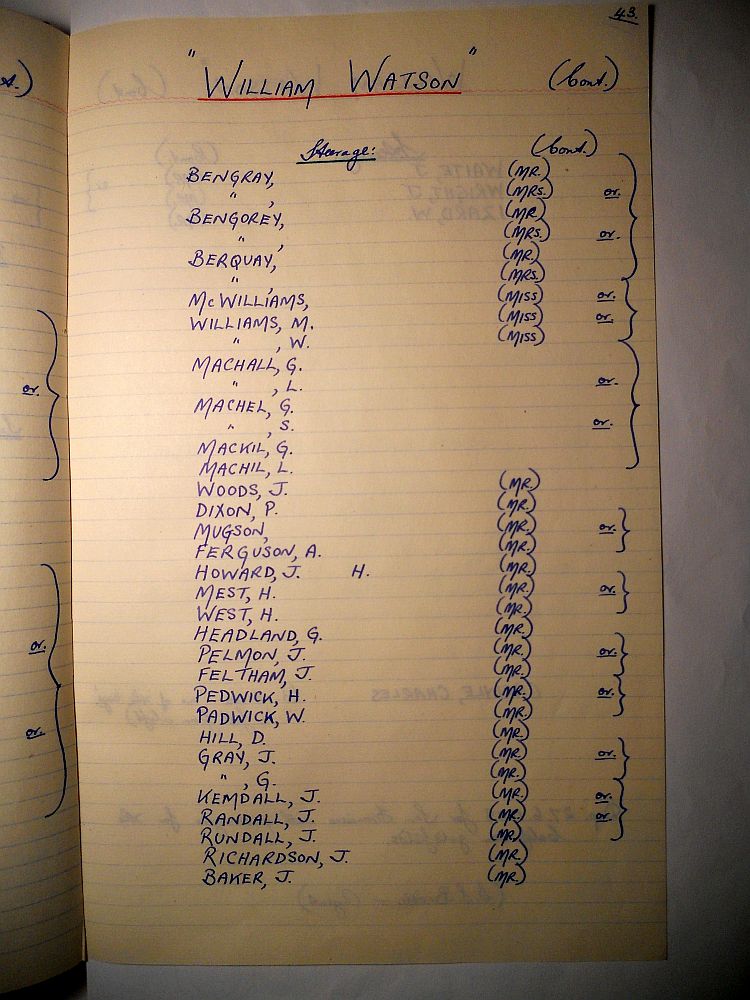 43.
"WILLIAM WATSON" (Cont.)
Steerage: (Cont.)
BENGRAY, (MR.)
" , (MRS.) or.
BENGOREY, (MR.)
" , (MRS.) or.
BERQUAY, (MR.)
" , (MRS.)
McWILLIAMS, (MISS) or.
WILLIAMS, M. (MISS) or.
" , W. (MISS)
MACHALL, G.
" , L. or.
MACHEL, G.
" , S. or.
MACKIL, G.
MACHIL, L.
WOODS, J. (MR.)
DIXON, P. (MR.)
MUGSON, (MR.) or.
FERGUSON, A. (MR.)
HOWARD, J. H. (MR.)
MEST, H. (MR.) or.
WEST, H. (MR.)
HEADLAND, G. (MR.)
PELMON, J. (MR.) or.
FELTHAM, J. (MR.)
PEDWICK, H. (MR.) or.
PADWICK, W. (MR.)
HILL, D. (MR.)
GRAY, J. (MR.) or.
" , G. (MR.)
KEMDALL, J. (MR.) or.
RANDALL, J. (MR.) or.
RUNDALL, J. (MR.)
RICHARDSON, J. (MR.)
BAKER, J. (MR.)
or.
or.
or.